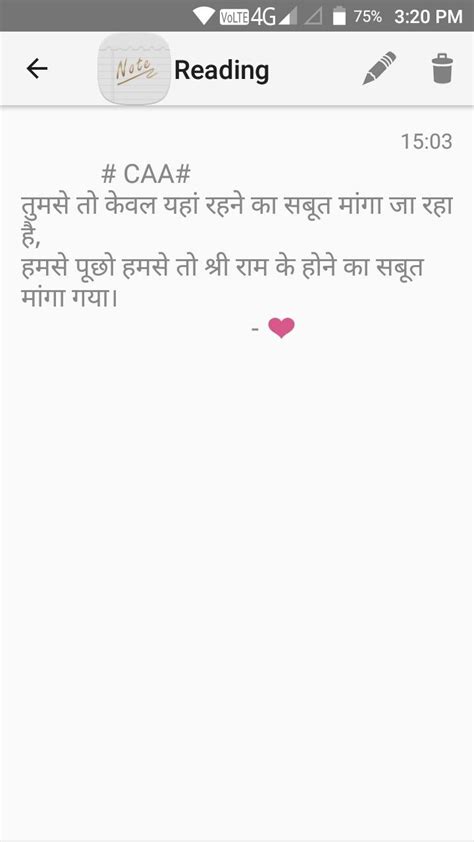 VoLTE 4G 75% 3:20 PM
Note Reading
15:03
# CAA#
तुमसे तो केवल यहां रहने का सबूत मांगा जा रहा
है,
हमसे पूछो हमसे तो श्री राम के होने का सबूत
मांगा गया।
- ❤